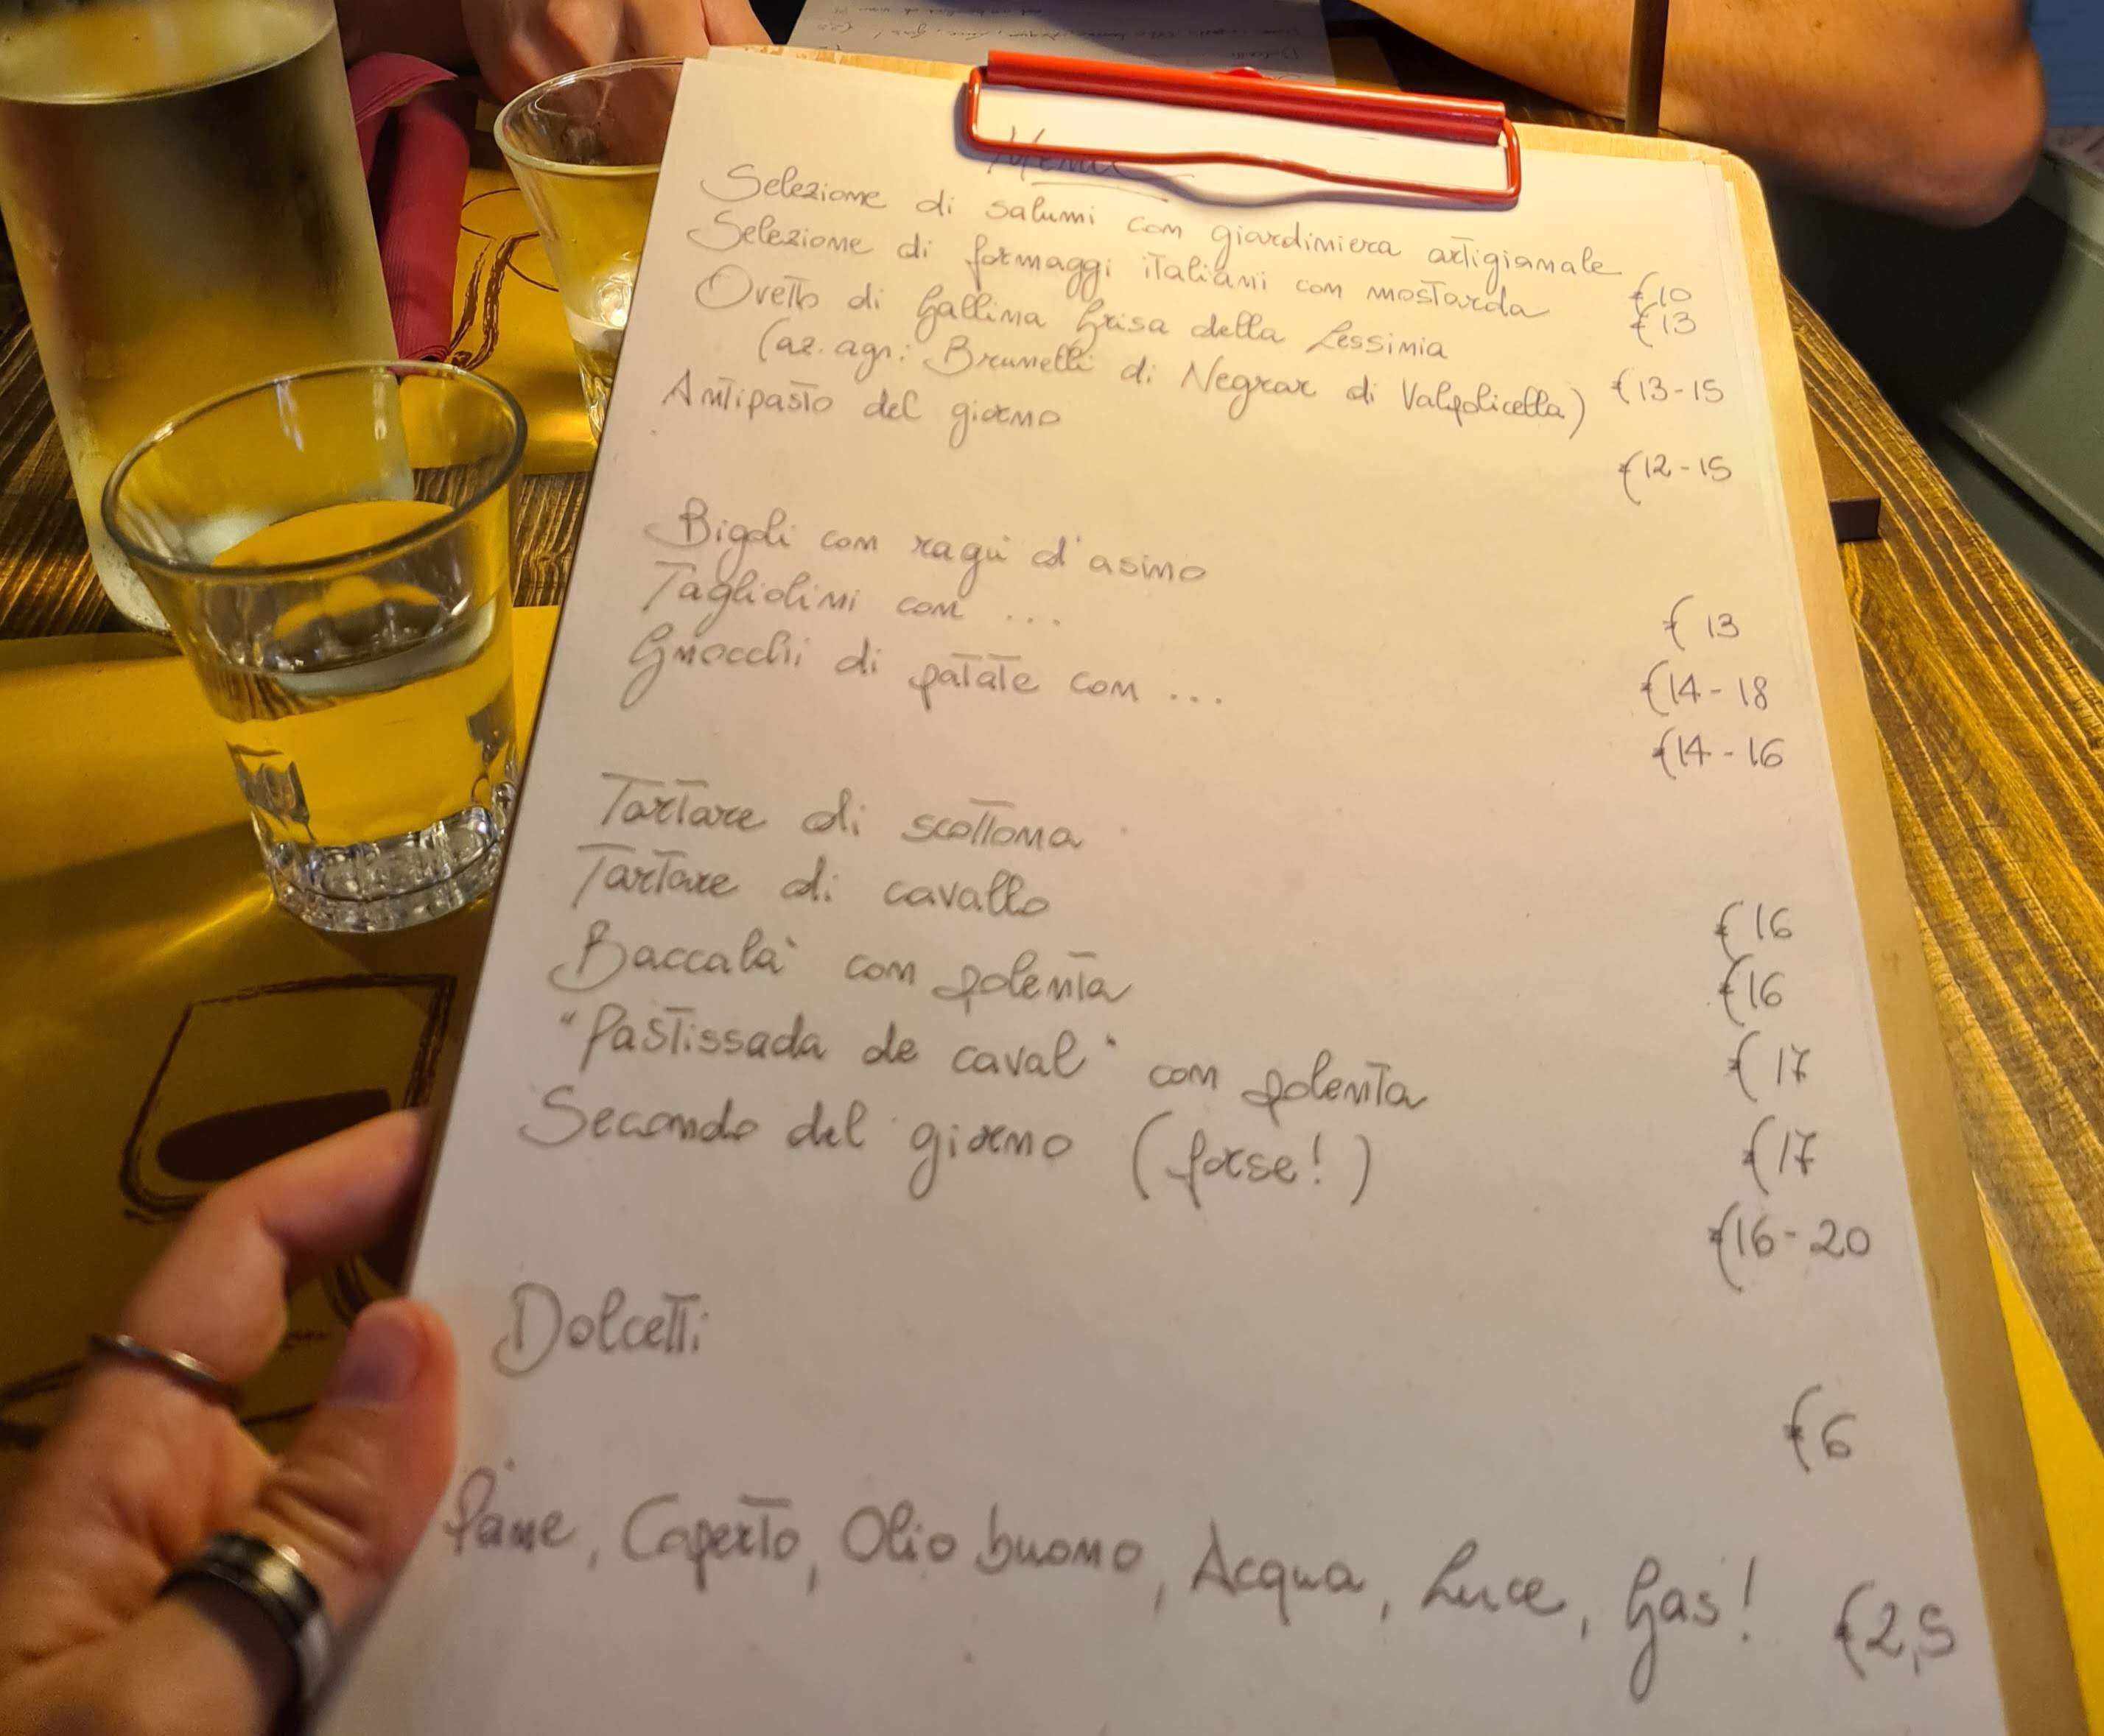 Menu
Selezione di salumi con giardiniera artigianale €10
Selezione di formaggi italiani con mostarda €13
Ovetto di Gallina Grisa della Lessinia
(az. agr: Brunelli di Negrar di Valpolicella) €13-15
Antipasto del giorno €12-15
Bigoli con ragù d'asino €13
Tagliolini con ... €14-18
Gnocchi di patate con ... €14-16
Tartare di scottona €16
Tartare di cavallo €16
Baccalà con polenta €17
"Pastissada de caval" con polenta €17
Secondo del giorno (forse!) €16-20
Dolcetti €6
Pane, Coperto, Olio buono, Acqua, Luce, Gas! €2,5